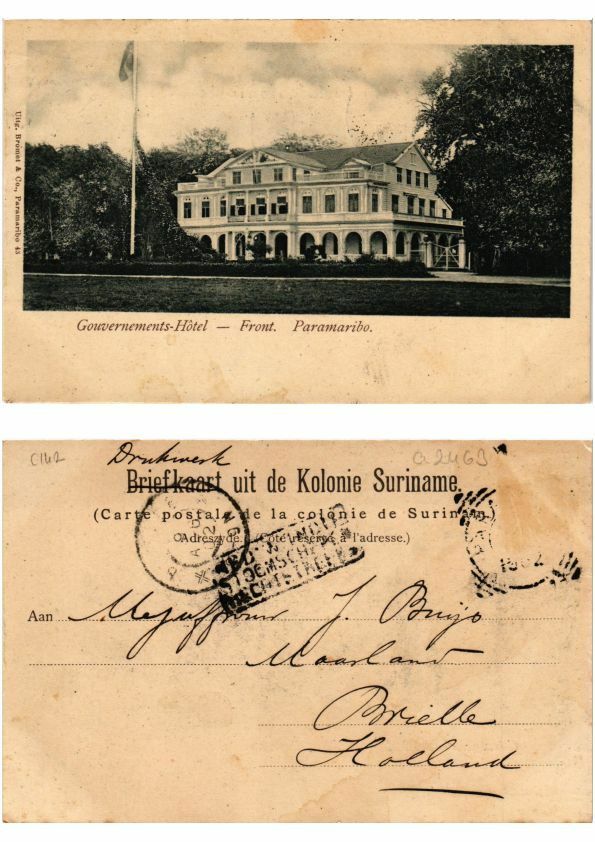 Uitg. Bromet & Co., Paramaribo 43
Gouvernements-Hôtel — Front. Paramaribo.
C142
a 2463
Drukwerk
Briefkaart uit de Kolonie Suriname.
(Carte postale de la colonie de Surinam.
Adreszyde. (Côté réservé à l'adresse.)
STOOMSCHEPEN
RECHTSTREEKS
1902
Aan Mejuffrouw J. Buijs
Maarland
Brielle
Holland